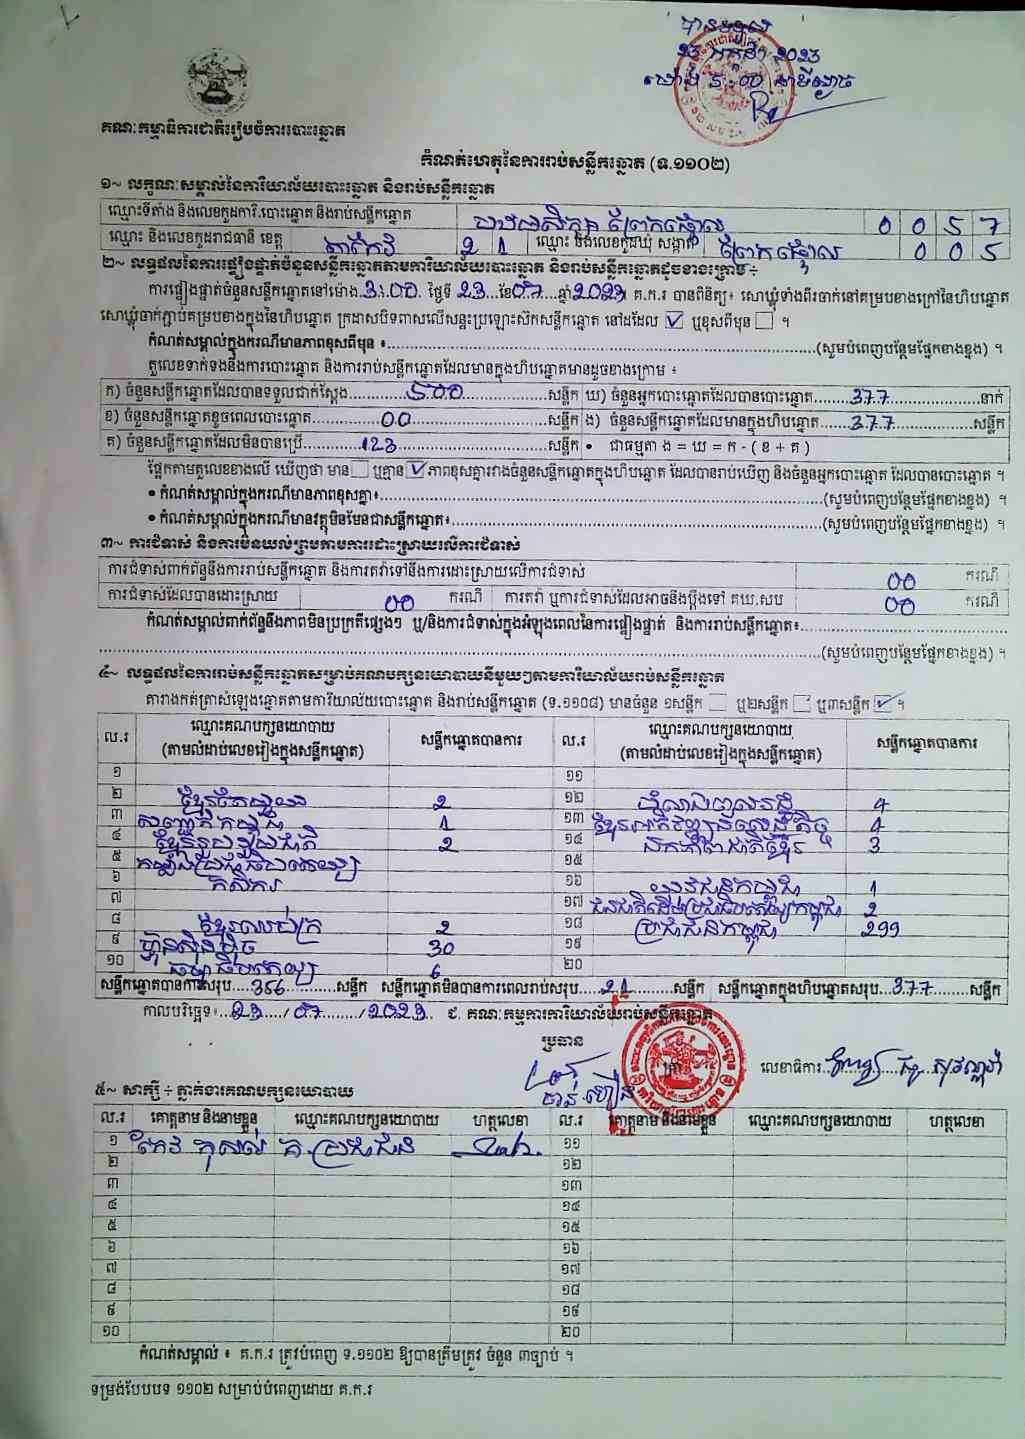 បានទទួល
២៣ កក្កដា 2023
ម៉ោង 5:00
គណៈកម្មាធិការជាតិរៀបចំការបោះឆ្នោត
កំណត់ហេតុនៃការរាប់សន្លឹកឆ្នោត (ទ.១១០២)
១~ លក្ខណៈសម្គាល់នៃការិយាល័យបោះឆ្នោត និងរាប់សន្លឹកឆ្នោត
ឈ្មោះទីតាំង និងលេខកូដការិ.បោះឆ្នោត និងរាប់សន្លឹកឆ្នោត ព្រែកផ្ទោល 0 0 5 7
ឈ្មោះ និងលេខកូដរាជធានី ខេត្ត តាកែវ 2 1 ឈ្មោះ និងលេខកូដឃុំ សង្កាត់ ព្រែកផ្ទោល 0 0 5
២~ លទ្ធផលនៃការផ្ទៀងផ្ទាត់ចំនួនសន្លឹកឆ្នោតតាមការិយាល័យបោះឆ្នោត និងរាប់សន្លឹកឆ្នោតដូចខាងក្រោម ÷
ការផ្ទៀងផ្ទាត់ចំនួនសន្លឹកឆ្នោតនៅម៉ោង 3:00 ថ្ងៃទី 23 ខែ 07 ឆ្នាំ 2023 គ.ក.រ បានពិនិត្យ៖ សោឃ្លុំទាំងពីរចាក់នៅគម្របខាងក្រៅនៃហិបឆ្នោត
សោឃ្លុំចាក់ភ្ជាប់គម្របខាងក្នុងនៃហិបឆ្នោត ក្រដាសបិទពាសលើសន្ទះប្រឡោះស៊កសន្លឹកឆ្នោត នៅដដែល ឬខុសពីមុន ។
កំណត់សម្គាល់ក្នុងករណីមានភាពខុសពីមុន ៖ (សូមបំពេញបន្ថែមផ្នែកខាងខ្នង) ។
តួលេខទាក់ទងនឹងការបោះឆ្នោត និងការរាប់សន្លឹកឆ្នោតដែលមានក្នុងហិបឆ្នោតមានដូចខាងក្រោម ៖
ក) ចំនួនសន្លឹកឆ្នោតដែលបានទទួលជាក់ស្តែង 500 សន្លឹក ឃ) ចំនួនអ្នកបោះឆ្នោតដែលបានបោះឆ្នោត 377 នាក់
ខ) ចំនួនសន្លឹកឆ្នោតខូចពេលបោះឆ្នោត 00 សន្លឹក ង) ចំនួនសន្លឹកឆ្នោតដែលមានក្នុងហិបឆ្នោត 377 សន្លឹក
គ) ចំនួនសន្លឹកឆ្នោតដែលមិនបានប្រើ 123 សន្លឹក • ជាធម្មតា ង = ឃ = ក - ( ខ + គ )
ផ្អែកតាមតួលេខខាងលើ ឃើញថា មាន ឬគ្មាន ភាពខុសគ្នារវាងចំនួនសន្លឹកឆ្នោតក្នុងហិបឆ្នោត ដែលបានរាប់ឃើញ និងចំនួនអ្នកបោះឆ្នោត ដែលបានបោះឆ្នោត ។
• កំណត់សម្គាល់ក្នុងករណីមានភាពខុសគ្នា៖ (សូមបំពេញបន្ថែមផ្នែកខាងខ្នង) ។
• កំណត់សម្គាល់ក្នុងករណីមានវត្ថុមិនមែនជាសន្លឹកឆ្នោត៖ (សូមបំពេញបន្ថែមផ្នែកខាងខ្នង) ។
៣~ ការជំទាស់ និងការមិនយល់ព្រមតាមការដោះស្រាយលើការជំទាស់
ការជំទាស់ពាក់ព័ន្ធនឹងការរាប់សន្លឹកឆ្នោត និងការតវ៉ាទៅនឹងការដោះស្រាយលើការជំទាស់ 00 ករណី
ការជំទាស់ដែលបានដោះស្រាយ 00 ករណី ការតវ៉ា ឬការជំទាស់ដែលអាចនឹងប្តឹងទៅ គឃ.សប 00 ករណី
កំណត់សម្គាល់ពាក់ព័ន្ធនឹងភាពមិនប្រក្រតីផ្សេងៗ ឬ/និងការជំទាស់ក្នុងអំឡុងពេលនៃការផ្ទៀងផ្ទាត់ និងការរាប់សន្លឹកឆ្នោត៖
(សូមបំពេញបន្ថែមផ្នែកខាងខ្នង) ។
៤~ លទ្ធផលនៃការរាប់សន្លឹកឆ្នោតសម្រាប់គណបក្សនយោបាយនីមួយៗតាមការិយាល័យរាប់សន្លឹកឆ្នោត
តារាងកត់ត្រាសំឡេងឆ្នោតតាមការិយាល័យបោះឆ្នោត និងរាប់សន្លឹកឆ្នោត (ទ.១១០៨) មានចំនួន ១សន្លឹក ឬ២សន្លឹក ឬ៣សន្លឹក ។
ល.រ ឈ្មោះគណបក្សនយោបាយ (តាមលំដាប់លេខរៀងក្នុងសន្លឹកឆ្នោត) សន្លឹកឆ្នោតបានការ ល.រ ឈ្មោះគណបក្សនយោបាយ (តាមលំដាប់លេខរៀងក្នុងសន្លឹកឆ្នោត) សន្លឹកឆ្នោតបានការ
១ ១១
២ ខ្មែរតែមួយ 2 ១២ 4
៣ សញ្ជាតិកម្ពុជា 1 ១៣ ខ្មែរអភិវឌ្ឍន៍សេដ្ឋកិច្ច 4
៤ ខ្មែររួបរួមជាតិ 2 ១៤ ឯកភាពជាតិខ្មែរ 3
៥ កម្លាំងប្រជាធិបតេយ្យ ១៥
៦ កសិករ ១៦ យុវជនកម្ពុជា 1
៧ ១៧ ជនជាតិដើមប្រជាធិបតេយ្យកម្ពុជា 2
៨ ខ្មែរឈប់ក្រ 2 ១៨ ប្រជាជនកម្ពុជា 299
៩ ហ៊្វុនស៊ិនប៉ិច 30 ១៩
១០ ធម្មាធិបតេយ្យ 6 ២០
សន្លឹកឆ្នោតបានការសរុប 356 សន្លឹក សន្លឹកឆ្នោតមិនបានការពេលរាប់សរុប 21 សន្លឹក សន្លឹកឆ្នោតក្នុងហិបឆ្នោតសរុប 377 សន្លឹក
កាលបរិច្ឆេទ៖ 23 / 07 / 2023 ជ. គណៈកម្មការការិយាល័យរាប់សន្លឹកឆ្នោត
ប្រធាន
លេខាធិការ
៥~ សាក្សី ÷ ភ្នាក់ងារគណបក្សនយោបាយ
ល.រ គោត្តនាម និងនាមខ្លួន ឈ្មោះគណបក្សនយោបាយ ហត្ថលេខា ល.រ គោត្តនាម និងនាមខ្លួន ឈ្មោះគណបក្សនយោបាយ ហត្ថលេខា
១ កែវ កុសល់ គ.ប្រជាជន ១១
២ ១២
៣ ១៣
៤ ១៤
៥ ១៥
៦ ១៦
៧ ១៧
៨ ១៨
៩ ១៩
១០ ២០
កំណត់សម្គាល់ ៖ គ.ក.រ ត្រូវបំពេញ ទ.១១០២ ឱ្យបានត្រឹមត្រូវ ចំនួន ៣ច្បាប់ ។
ទម្រង់បែបបទ ១១០២ សម្រាប់បំពេញដោយ គ.ក.រ